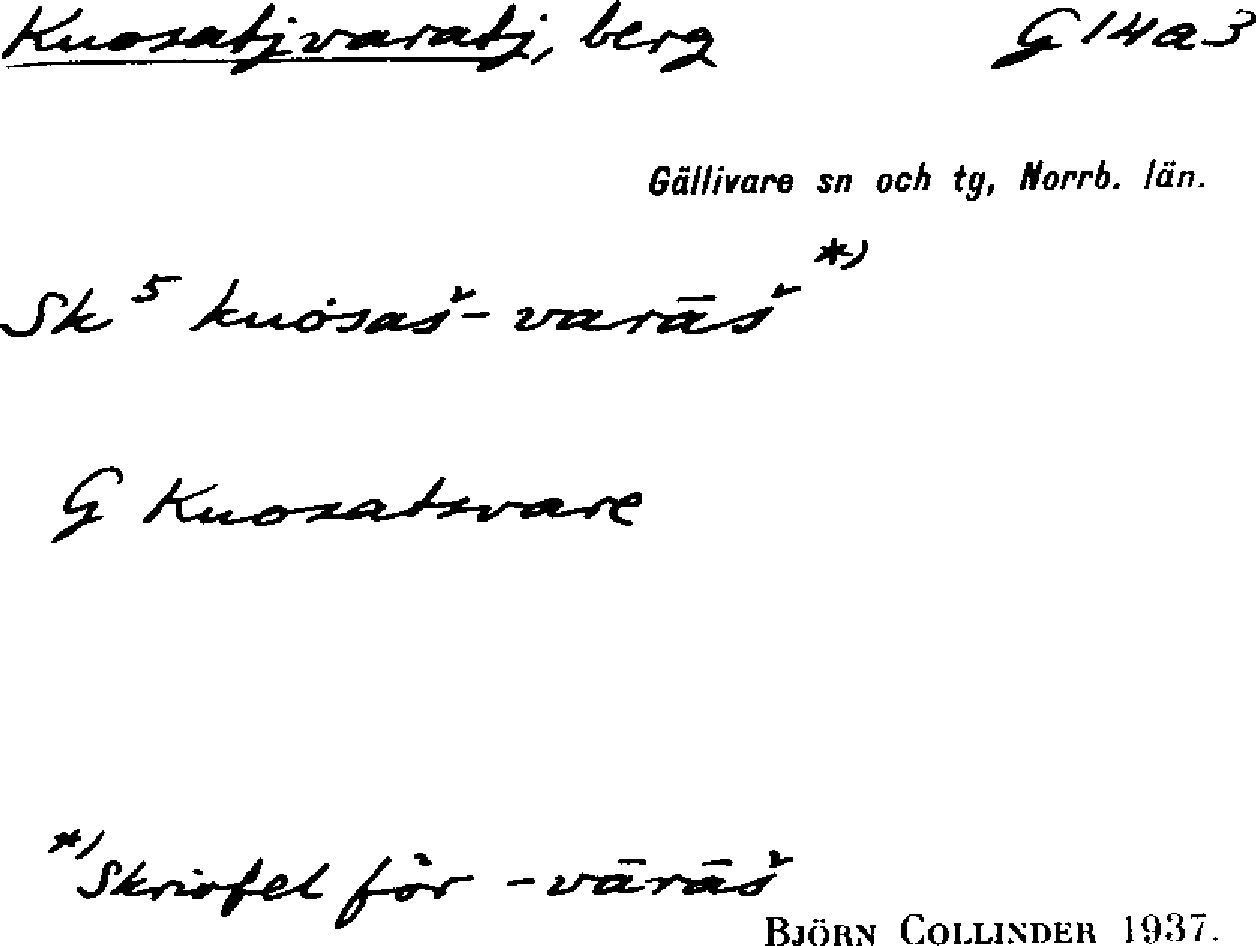 Kuosatjvaratj, berg G 14 a 3
Gällivare sn och tg, Norrb. län.
Sk 5 kuȯsaš-varāš *)
G Kuosatsvare
*) Skrivfel för -vārāš
BJÖRN COLLINDER 1937.